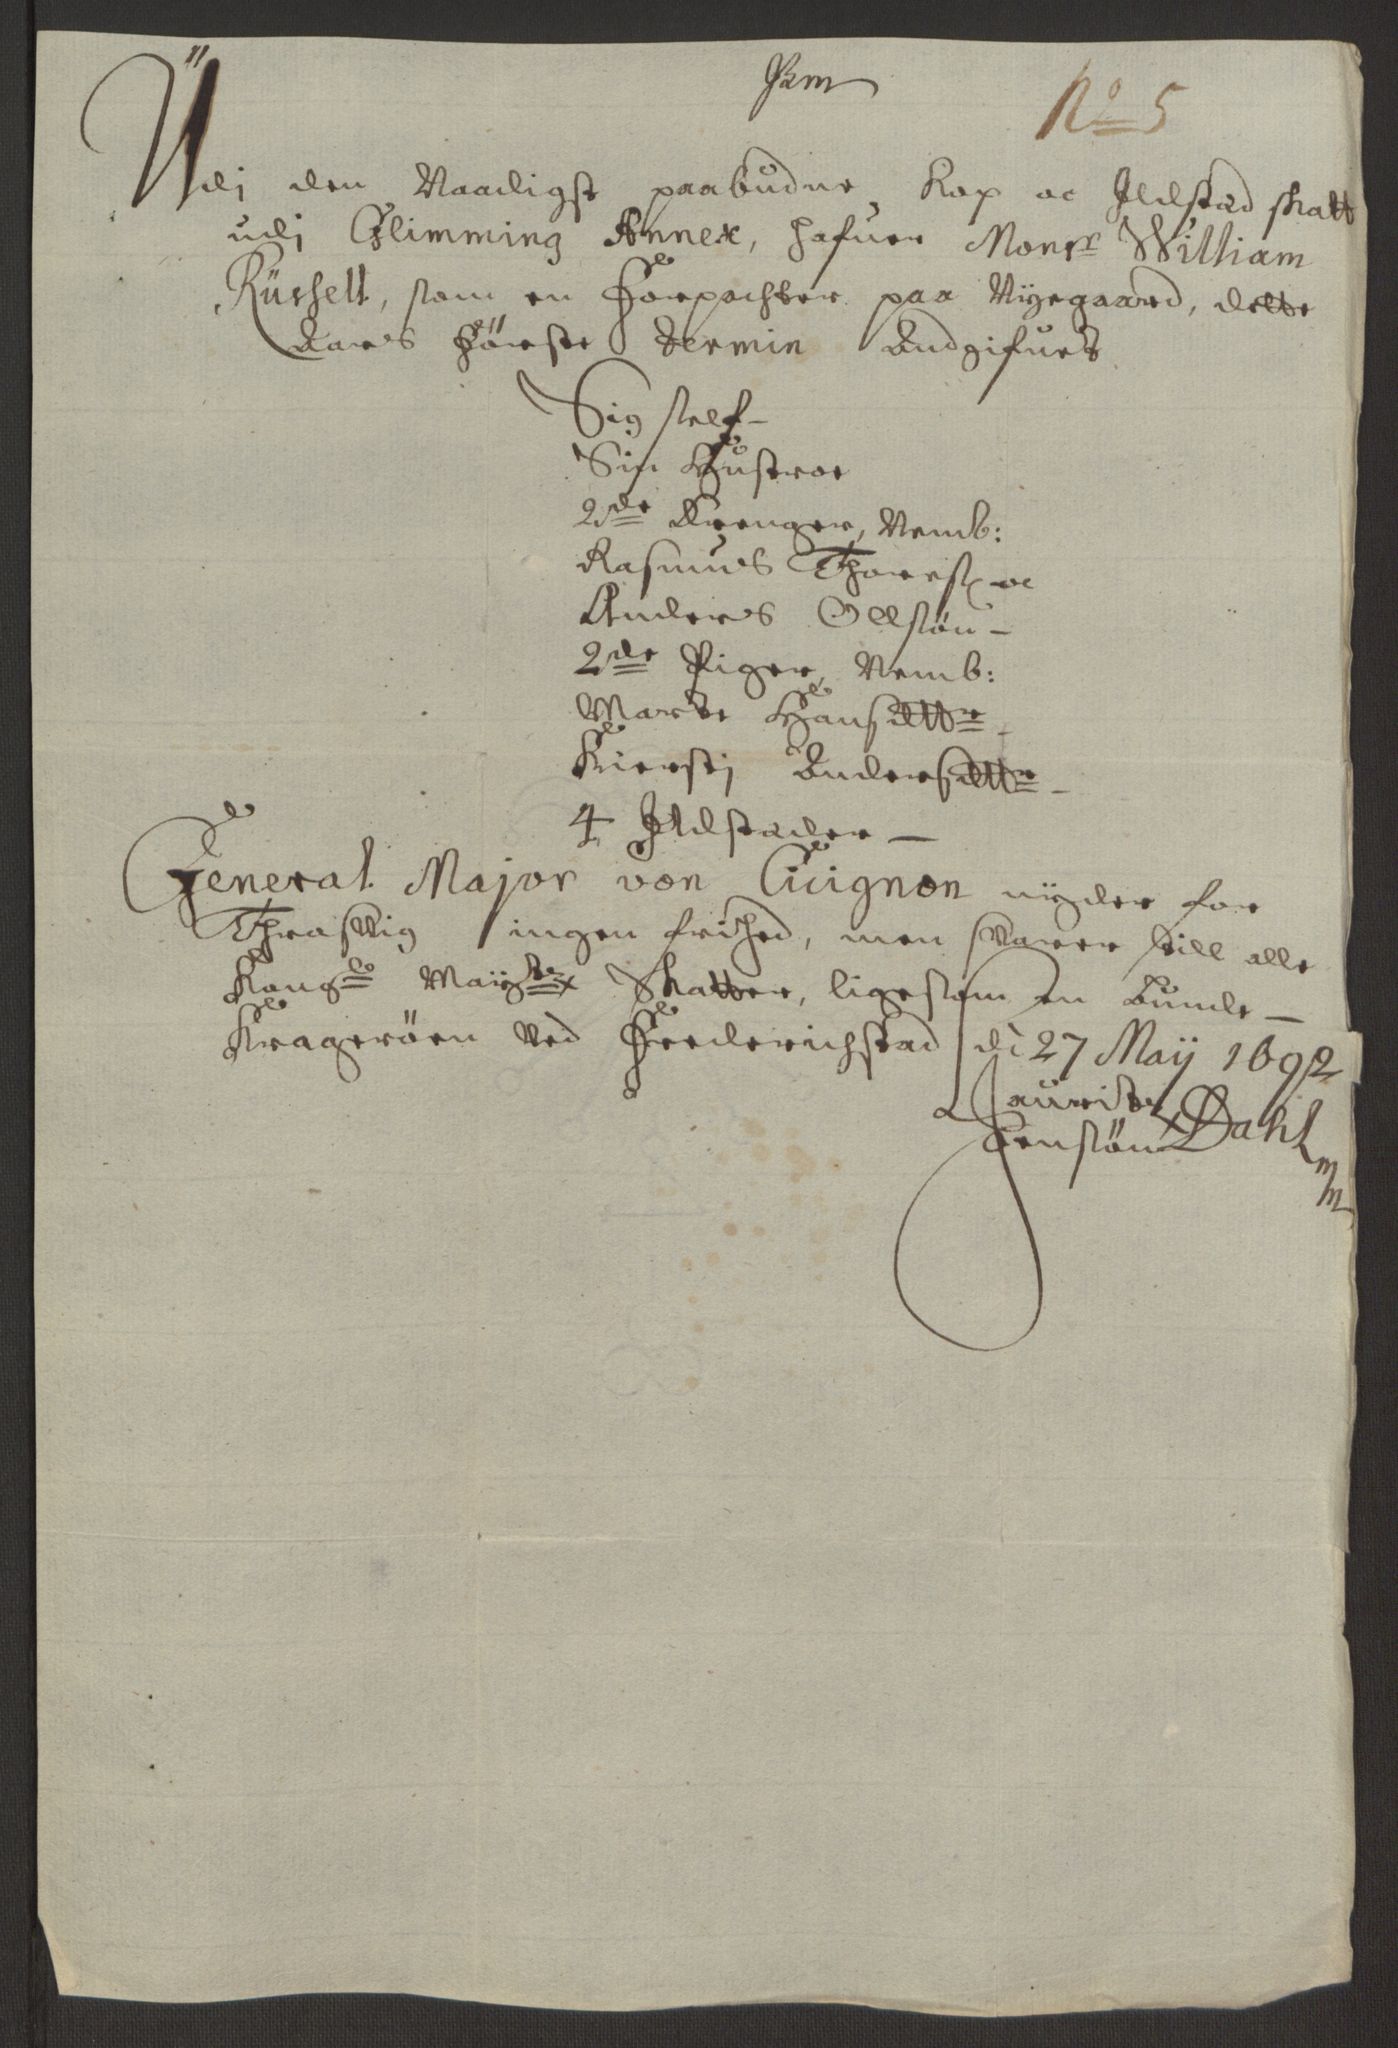 No 5
Udj den Naadigst paabudne Kop oc Ildsted skatt
udj Glimming Annex, hafuer Monsr William
Rüssell, som en Forpachter paa Nyegaard, dette
Aars Første Termin Andgifuet
Sig self -
Sin Hustroe
2de Drenger, Nemb:
Rasmus Thoress: oc
Anders Ollsøn -
2de Piger, Nemb:
Marte Hansdttr -
Kierstj Andersdttr -
4 Ildsteder -
General Major von Cüignon nyder for
Throsvig ingen frihed, men svarer till alle
Kongl Mayts Skatter, ligesom en bunde -
Kragerøen ved Frederichstad di 27 Maij 1692
Lauritz
Jensøn Dahl
mm